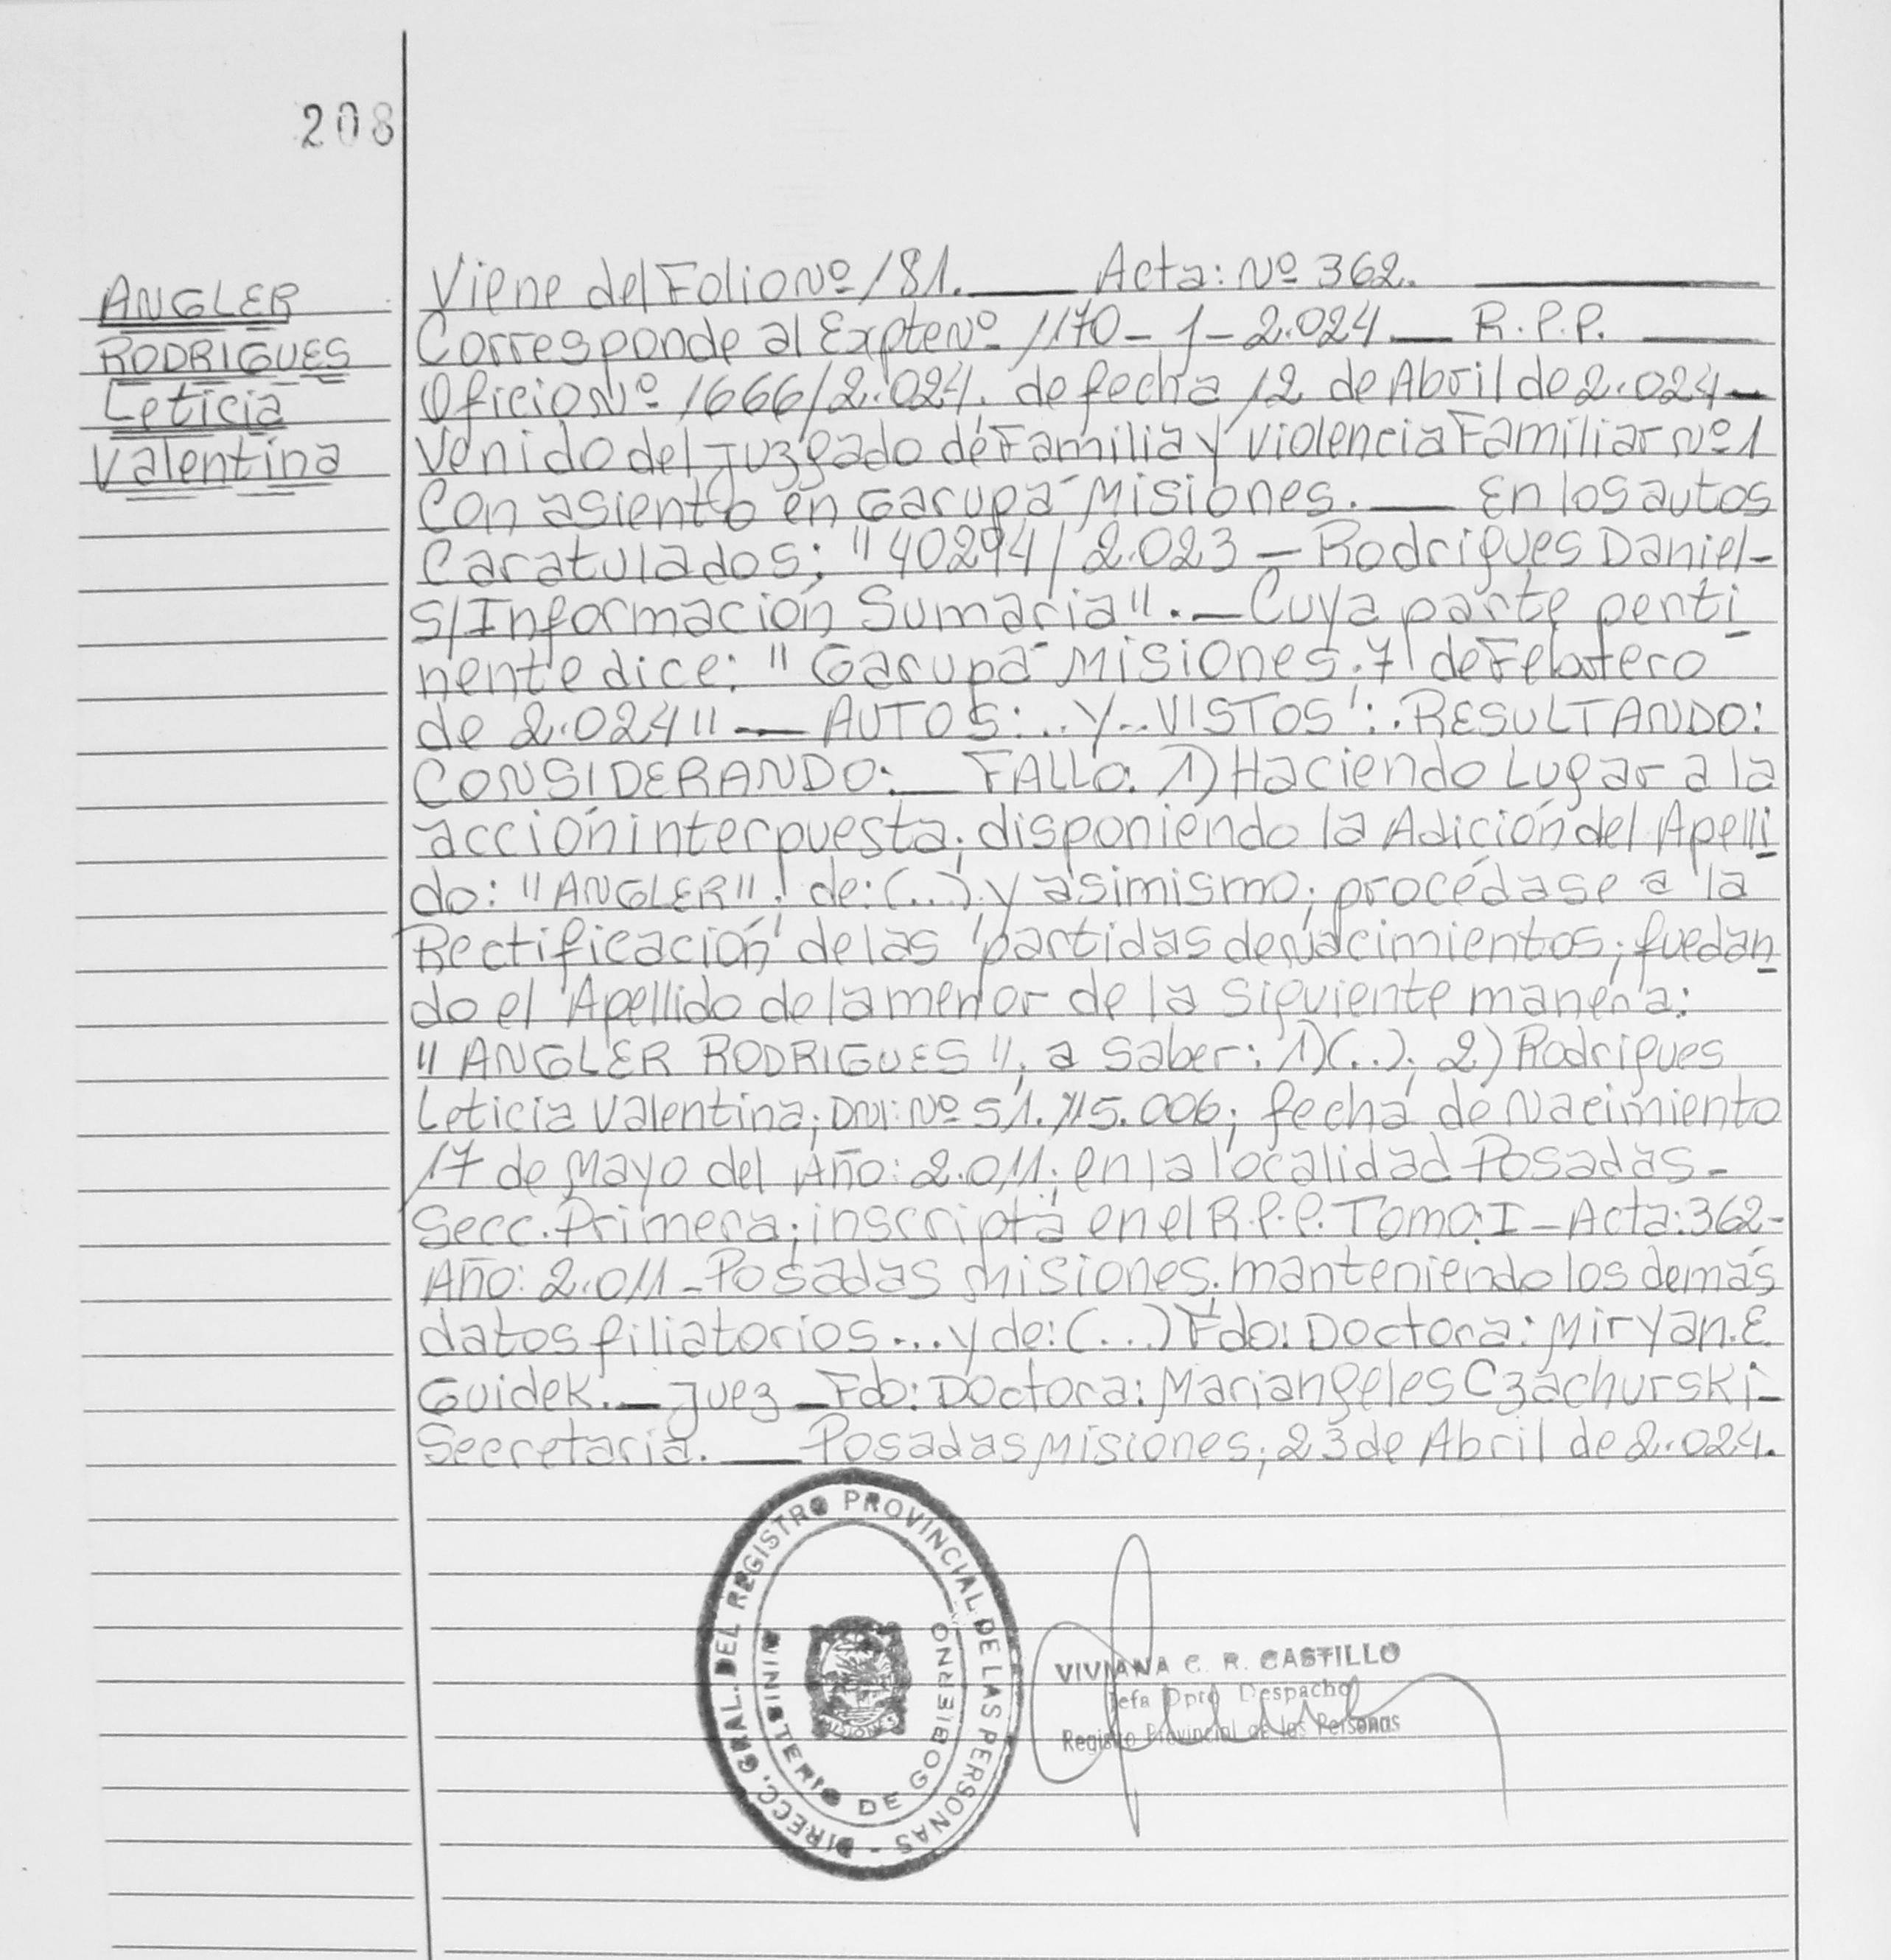 208
ANGLER
RODRIGUES
Leticia
Valentina
Viene del Folio Nº 181. ___ Acta: Nº 362.
Corresponde al Expte Nº 1170 - 1 - 2.024 __ R.P.P.
Oficio Nº 1666/2.024. de fecha 12 de Abril de 2.024 -
Venido del Juzgado de Familia y Violencia Familiar Nº 1
Con asiento en Garupá Misiones. __ En los autos
Caratulados: "40294/2.023 - Rodrigues Daniel -
S/Información Sumaria". _ Cuya parte penti
nente dice: "Garupá Misiones. 7 de Febrero
de 2.024" __ AUTOS: .. Y .. VISTOS: . RESULTANDO:
CONSIDERANDO: __ FALLO: 1) Haciendo Lugar a la
acción interpuesta; disponiendo la Adición del Apelli
do: "ANGLER"; de: (..) y asimismo; procédase a la
Rectificación de las partidas de nacimientos; quedan
do el Apellido de la menor de la siguiente manera:
"ANGLER RODRIGUES", a saber: 1) (..); 2) Rodrigues
Leticia Valentina; DNI: Nº 51.115.006; fecha de Nacimiento
17 de Mayo del Año: 2.011; en la localidad Posadas -
Secc. Primera; inscripta en el R.P.P. Tomo: I - Acta: 362 -
Año: 2.011 - Posadas Misiones; manteniendo los demás
datos filiatorios ... y de: (...) Fdo: Doctora: Miryan. E.
Guidek. _ Juez _ Fdo: Doctora: Mariangeles Czachurski -
Secretaria. __ Posadas Misiones; 23 de Abril de 2.024.
DIRECC. GRAL. DEL REGISTRO PROVINCIAL DE LAS PERSONAS -
MINISTERIO DE GOBIERNO
MISIONES
VIVIANA C. R. CASTILLO
Jefa Dpto Despacho
Registro Provincial de las Personas